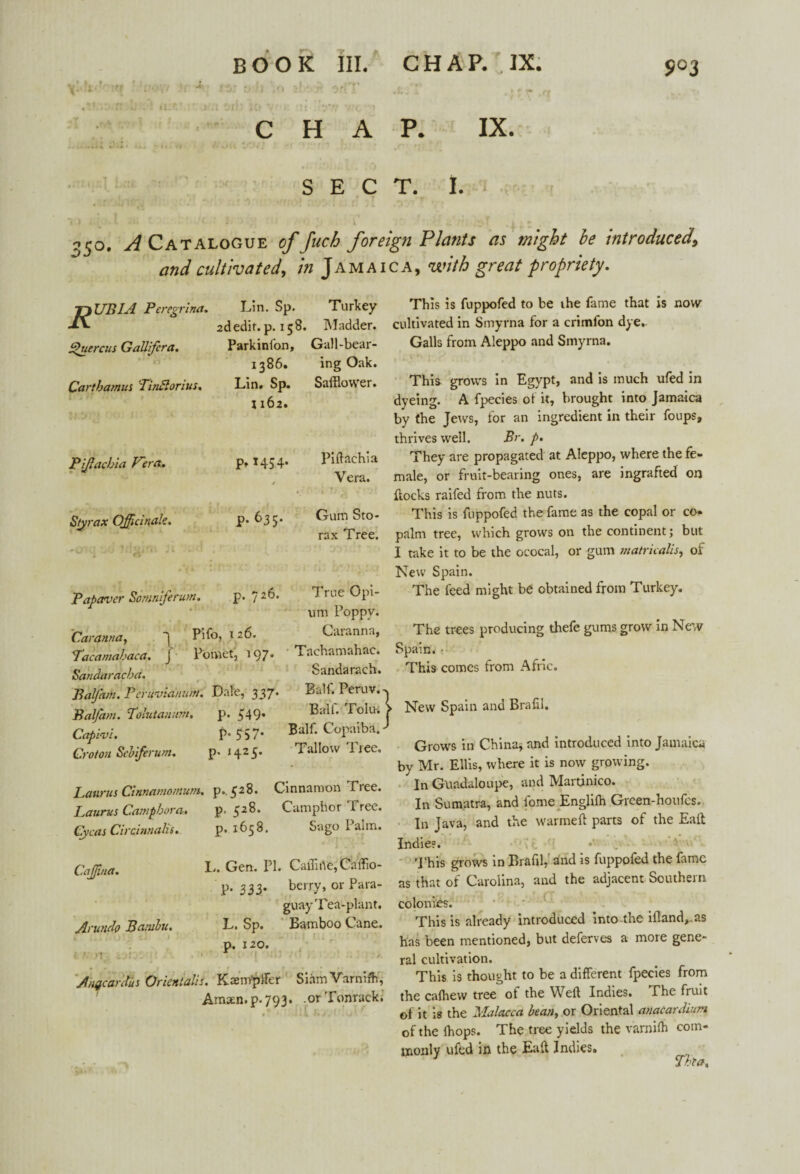 BOOK III. CHAP. IX. 903
CHAP. IX.
SECT. I.
350. A CATALOGUE of ſuch foreign Plants as might be introduced,
and cultivated, in JAMAICA, with great propriety.
RUBIA Peregrina. Lin. Sp. Turkey
2d edit. p. 158. Madder.
Quercus Gallifera. Parkinſon, Gall-bear-
1386. ing Oak.
Carthamus Tinctorius. Lin. Sp. Safflower.
1162.
Piſtachia Vera. p. 1454. Piſtachia
Vera.
Styrax Officinale. p. 635. Gum Sto-
rax Tree.
Papaver Somniferum. p. 726. True Opi-
um Poppy.
Caranna, } Piſo, 126. Caranna,
Tacamahaca. } Pomet, 197. Tachamahac.
Sandaracha. Sandarach.
Balſam. Peruvianum. Dale, 337. Balſ. Peruv.
Balſam. Tolutanum. p. 549. Balſ. Tolu.
Capivi. p. 557. Balſ. Copaiba.
Croton Sebiferum. p. 1425. Tallow Tree.
Laurus Cinnamomum. p. 528. Cinnamon Tree.
Laurus Camphora. p. 528. Camphor Tree.
Cycas Circinnalis. p. 1658. Sago Palm.
Caſſina. L. Gen. Pl. Caſſine, Caſſio-
p. 333. berry, or Para-
guay Tea-plant.
Arundo Bambu. L. Sp. Bamboo Cane.
p. 120.
Anacardus Orientalis. Kæmpifer Siam Varniſh,
Amæn. p. 793. or Tonrack.
This is ſuppoſed to be the ſame that is now
cultivated in Smyrna for a crimſon dye.
Galls from Aleppo and Smyrna.
This grows in Egypt, and is much uſed in
dyeing. A ſpecies of it, brought into Jamaica
by the Jews, for an ingredient in their ſoups,
thrives well. Br. p.
They are propagated at Aleppo, where the fe-
male, or fruit-bearing ones, are ingrafted on
ſtocks raiſed from the nuts.
This is ſuppoſed the ſame as the copal or co-
palm tree, which grows on the continent; but
I take it to be the ococal, or gum matricalis, of
New Spain.
The ſeed might be obtained from Turkey.
The trees producing theſe gums grow in New
Spain.
This comes from Afric.
} New Spain and Braſil.
Grows in China, and introduced into Jamaica
by Mr. Ellis, where it is now growing.
In Guadaloupe, and Martinico.
In Sumatra, and ſome Engliſh Green-houſes.
In Java, and the warmeſt parts of the Eaſt
Indies.
This grows in Braſil, and is ſuppoſed the ſame
as that of Carolina, and the adjacent Southern
colonies.
This is already introduced into the iſland, as
has been mentioned, but deſerves a more gene-
ral cultivation.
This is thought to be a different ſpecies from
the caſhew tree of the Weſt Indies. The fruit
of it is the Malacca bean, or Oriental anacardium
of the ſhops. The tree yields the varniſh com-
monly uſed in the Eaſt Indies.